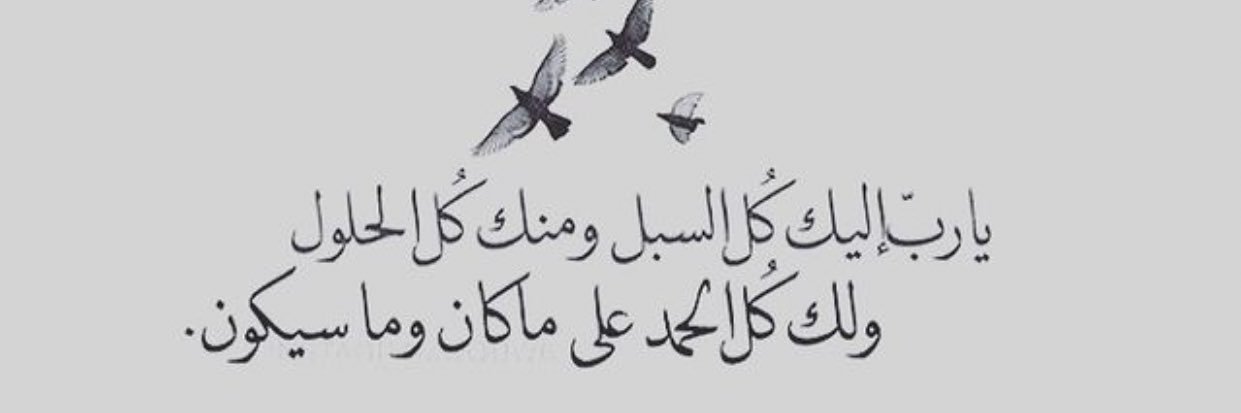 يا ربّ إليك كُل السبل ومنك كُل الحلول
ولك كُل الحمد على ماكان وما سيكون.